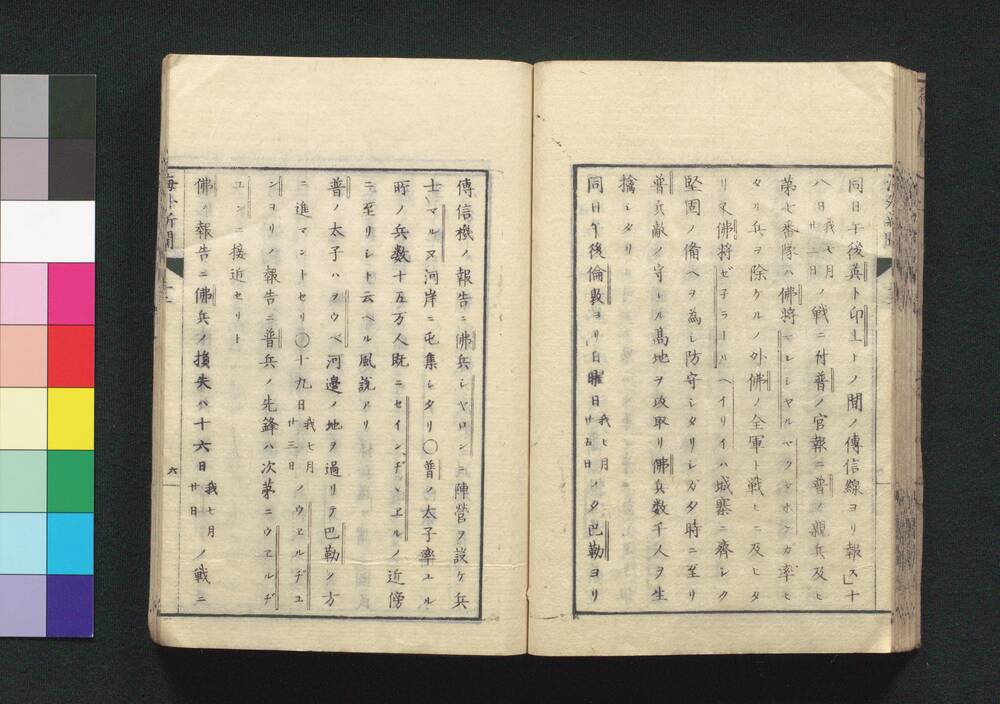 同日午後英ト印土トノ間ノ傳信線ヨリ報ス」十
八日我七月廿二日ノ戦ニ付普ノ官報ニ普ノ親兵及ヒ
第七番隊ハ佛将マレシヤルマクマホケガ率ヒ
タリ兵ヲ除ケルノ外佛ノ全軍ト戦ヒニ及ヒタ
リ又佛将ゼ子ラールヘイリイハ城寨ニ齊シク
堅固ノ備ヘヲ為レ防守シタリレガ夕時ニ至リ
普兵敵ノ守レル髙地ヲ攻取リ佛兵数千人ヲ生
擒シタリ
同日午後倫敦ヨリ日曜日我七月廿五日ノ夕巴勒ヨリ
傳信機ノ報告ニ佛兵シヤロンニ陣營ヲ設ケ兵
士マル子河岸ニ屯集シタリ〇普ノ太子率ユル
所ノ兵数十五万人既ニセインヂヽエルノ近傍
ニ至リシト云ヘル風説アリ
普ノ太子ハヲウベ河邉ノ地ヲ過リテ巴勒ノ方
ニ進マントセリ〇十九日我七月廿三日ノウエルヂユ
ンヨリノ報告ニ普兵ノ先鋒ハ次第ニウエルヂ
ユンニ接近セリト
佛ノ報告ニ佛兵ノ損失ハ十六日我七月廿日ノ戦ニ
海外新聞
六